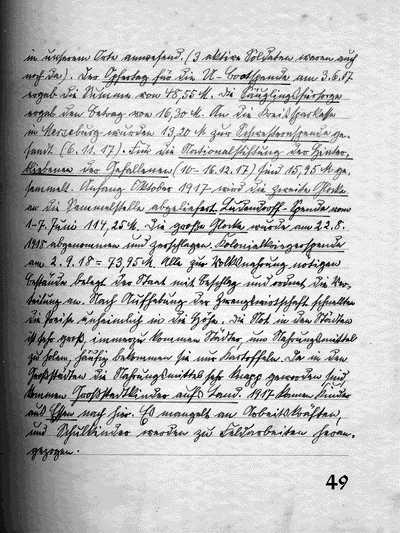 in unserem Orte anwesend. (3 aktive Soldaten waren auch
noch da). Der Opfertag für die U-Bootspende am 3.6.17
ergab die Summe von 48,55 M. Die Säuglingsfürsorge
ergab den Betrag von 16,30 M. An die Kreissparkasse
in Merseburg wurden 13,20 M zur Schwesternspende ge-
sandt (6.11.17). Für die Nationalstiftung der Hinter-
bliebenen der Gefallenen (10-16.12.17) sind 15,95 M ge-
sammelt. Anfang Oktober 1917 wird die zweite Glocke
an die Sammelstelle abgeliefert. Ludendorff-Spende vom
1-7. Juni 114,25 M. Die große Glocke wurde am 22.8.
1918 abgenommen und zerschlagen. Kolonialkriegerspende
am 2.9.18 = 73,95 M. Alle zur Volksnahrung nötigen
Bestände belegt der Staat mit Beschlag und ordnet die Ver-
teilung an. Nach Aufhebung der Zwangswirtschaft schnellten
die Preise unheimlich in die Höhe. Die Not in den Städten
ist sehr groß, immerzu kommen Städter, um Nahrungsmittel
zu holen, häufig bekommen sie nur Kartoffeln. Da in den
Großstädten die Nahrungsmittel sehr knapp geworden sind
kommen Großstadtkinder aufs Land. 1917 kamen Kinder
aus Essen nach hier. Es mangelt an Arbeitskräften,
und Schulkinder werden zu Feldarbeiten heran-
gezogen.
49